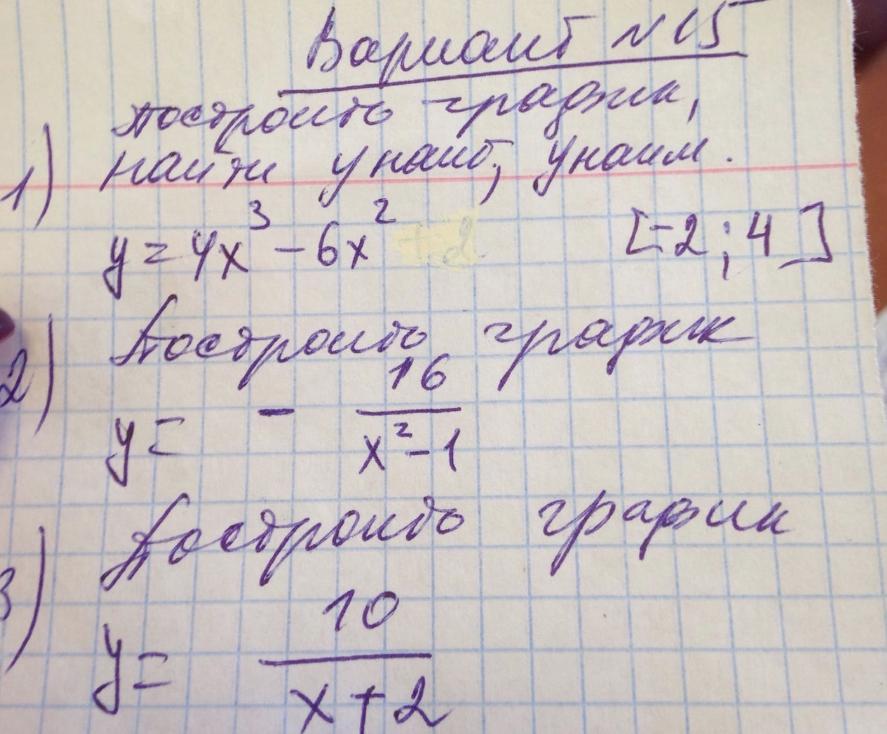 Вариант №15
Построить график,
1) найти унаиб, унаим.
y = 4x³ - 6x² [-2; 4]
2) Построить график
y = - 16 / (x² - 1)
3) Построить график
y = 10 / (x + 2)